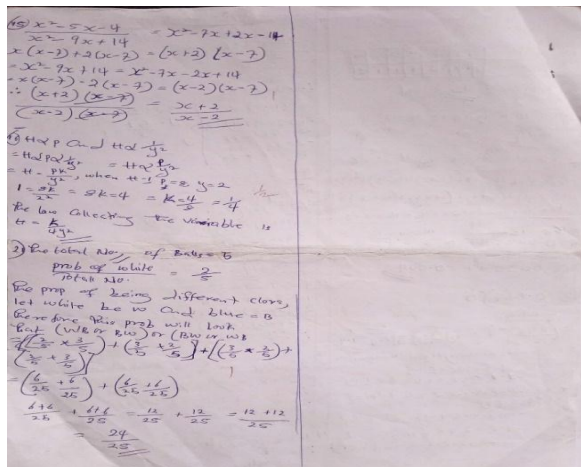 x² - 5x - 4 / x² - 9x + 14 = x² - 7x + 2x - 14
x(x-7) + 2(x-7) = (x+2)(x-7)
= x² - 9x + 14 = x² - 7x - 2x + 14
= x(x-7) - 2(x-7) = (x-2)(x-7)
∴ (x+2)(x-7) / (x-2)(x-7) = x+2 / x-2
H α P and H α 1/y²
= H α P α 1/y² = H α P/y²
= H = PK/y², when H=1 P=8 y=2
1 = 8K/2² = 8K = 4 = K = 4/8 = 1/4
The law Collecting the variable is
H = /4y²
2) The total No. of Balls = 5
prob of white / Total No. = 2/5
The prop of being different
let white be w and blue = B
therefore this prob will look
that (WB or BW) or (BW or WB
= [(2/5 × 3/5) + (3/5 × 2/5)] + [(3/5 × 2/5) +
(2/5 × 3/5)]
= (6/25 + 6/25) + (6/25 + 6/25)
6+6/25 + 6+6/25 = 12/25 + 12/25 = 12+12/25
= 24/25